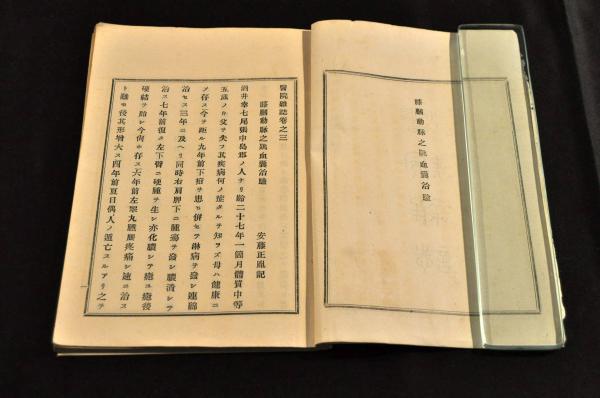 膝膕動脉之跳血嚢治驗
醫院雜誌卷之三
膝膕動脉之跳血嚢治驗
安藤正胤記
酒井幸七尾張中島郡ノ人ナリ齢二十七年一個月體質中等
五歳ノ片父ヲ失フ其疾病何ノ症タルヲ知ラズ母ハ健康ニ
ノ存ス今ヲ距ル九年前下疳ヲ患ヒ併セテ淋病ヲ發シ連綿
治セス三年ニ及ヘリ同時右肩胛下ニ腫瘍ヲ發シ膿潰シテ
治ス七年前復タ左下臂ニ硬腫ヲ生シ亦化膿シテ癒ユ癒後
硬結ヲ貽シ今尚ホ存ス六年前左睾丸腫脹疼痛シ速ニ治ス
ト雖モ後其形增大ス四年前夏日偶人ノ遁亡スルアリ之ヲ